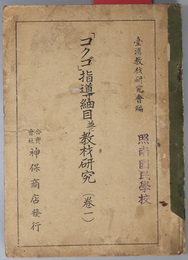 臺灣教材研究會編
「コクゴ」指導細目並教材研究(卷一)
合資會社 神保商店發行
國民學校